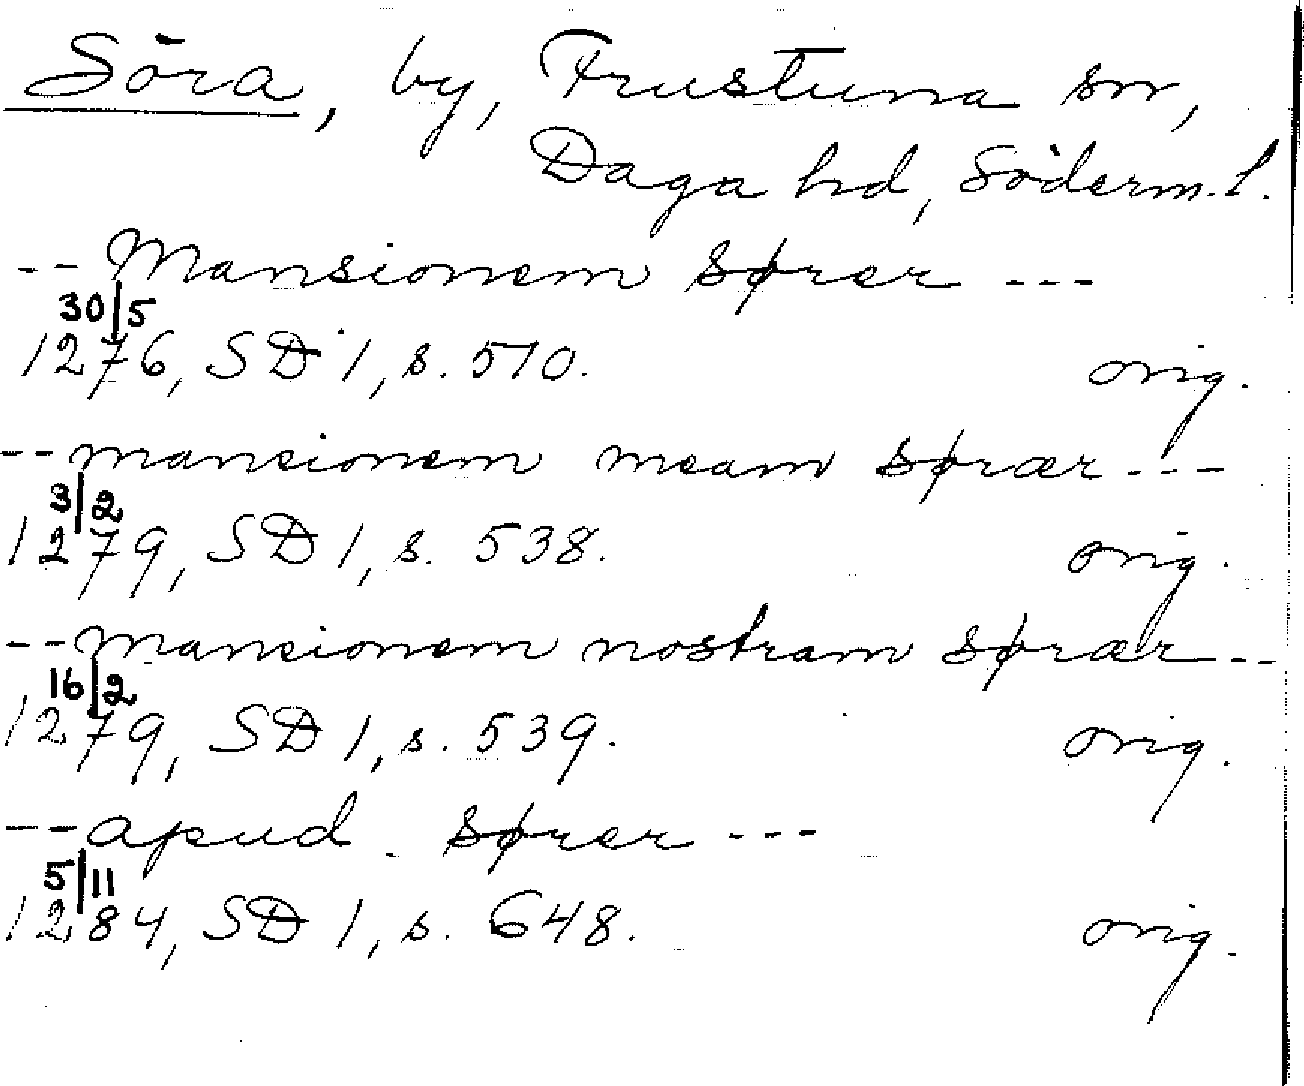 Söra, by, Frustuna sn,
Daga hd, Söderm.l.
-- Mansionem Sører ---
30/5
1276, SD 1, s. 510. orig.
-- mansionem meam Sørær ---
3/2
1279, SD 1, s. 538. orig.
-- mansionem nostram Sørær --
16/2
1279, SD 1, s. 539. orig.
-- apud Sører ---
5/11
1284, SD 1, s. 648. orig.